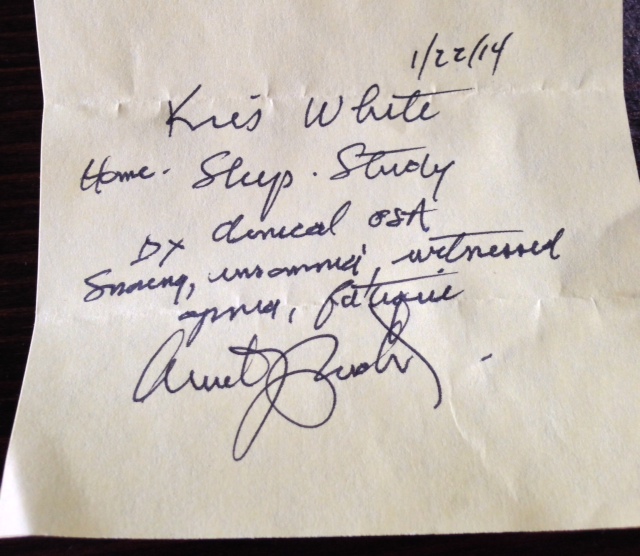 1/22/14
Kris White
Home. Sleep. Study
DX clinical OSA
Snoring, insomnia, witnessed
apnea, fatigue